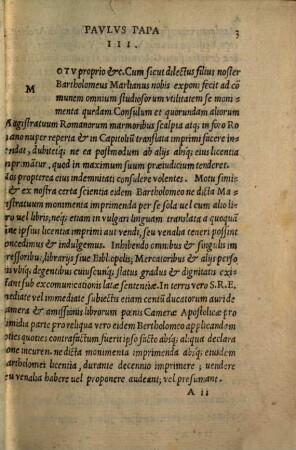 PAVLVS PAPA 3
III.
M OTV proprio &c. Cum sicut dilectus filius noster
Bartholomeus Marlianus nobis exponi fecit ad cō
munem omnium studiosorum utilitatem se moni
menta quedam Consulum et quorundam aliorum
Magistratuum Romanorum marmoribus scalpta atq; in foro Ro
mano nuper reperta & in Capitoliū translata imprimi facere in
tendat, dubitetq; ne postmodum ab alijs absq; eius licentia
inprimātur, quod in maximum suum præiudicium tenderet.
Nos propterea eius indemnitati consulere volentes. Motu simi
li & ex nostra certa scientia eidem Bartholomeo ne dicta Ma
gistratuum monumenta imprimenda per se sola uel cum alio
ro uel libris, neq; etiam in vulgari linguam translata a quoquā
sine ipsius licentia imprimi aut vendi, seu venalia teneri possint
concedimus & indulgemus. Inhibendo omnibus & singulis im
pressoribus, librarijs siue Bibliopolis, Mercatoribus & alijs perso
nis vbiq; degentibus cuiuscunq; status gradus & dignitatis exi
stant sub excommunicationis latæ sententiæ. In terris vero S.R.E.
mediate vel immediate subiectis etiam centū ducatorum auride
camera & amissionis librorum pœnis Cameræ Apostolicæ pro
dimidia parte pro reliqua vero eidem Bartholomeo applicandorum
toties quoties contrafactum fuerit ipso facto absq; aliqua declara
tione incuren. ne dicta monimenta imprimenda absq; eiusdem
Bartholomei licentia, durante decennio imprimere ; uendere
seu venalia habere uel proponere audeant; vel presumant.
A ii